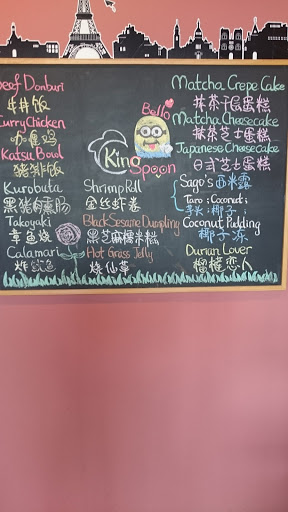 Beef Donburi
牛丼饭
Curry Chicken
咖喱鸡
Katsu Bowl
猪排饭
Kurobuta
黑豬肉薰肠
Takoyaki
章鱼烧
Calamari
炸鱿鱼
Bello
King
Spoon
Shrimp Roll
金丝虾卷
Black Sesame Dumpling
黑芝麻糯米糕
Hot Grass Jelly
烧仙草
Matcha Crepe Cake
抹茶千层蛋糕
Matcha Cheesecake
抹茶芝士蛋糕
Japanese Cheesecake
日式芝士蛋糕
Sago's 西米露
Taro; Coconut;
芋头; 椰子;
Coconut Pudding
椰子冻
Durian Lover
榴槤恋人